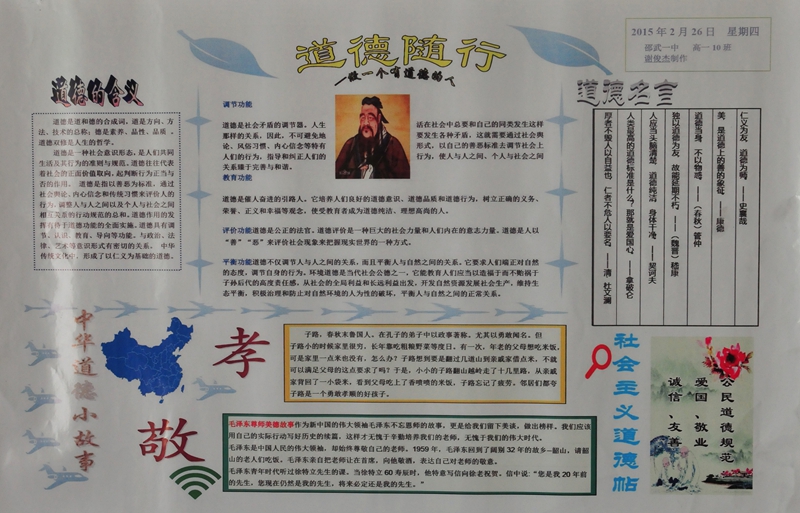 2015年2月26日 星期四
邵武一中 高一10班
谢俊杰制作
道德随行
—做一个有道德的人
道德的含义
道德是道和德的合成词,道是方向、方
法、技术的总称;德是素养、品性、品质。
道德双修是人生的哲学。
道德是一种社会意识形态,是人们共同
生活及其行为的准则与规范。道德往往代表
着社会的正面价值取向,起判断行为正当与
否的作用。道德是指以善恶为标准,通过
社会舆论、内心信念和传统习惯来评价人的
行为,调整人与人之间以及个人与社会之间
相互关系的行动规范的总和。道德作用的发
挥有待于道德功能的全面实施。道德具有调
节、认识、教育、导向等功能。与政治、法
律、艺术等意识形式有密切的关系。中华
传统文化中,形成了以仁义为基础的道德。
调节功能
道德是社会矛盾的调节器。人生
活在社会中总要和自己的同类发生这样
那样的关系,因此,不可避免地
要发生各种矛盾,这就需要通过社会舆
论、风俗习惯、内心信念等特有
形式,以自己的善恶标准去调节社会上
人们的行为,指导和纠正人们的
行为,使人与人之间、个人与社会之间
的关系臻于完善与和谐。
教育功能
道德是催人奋进的引路人。它培养人们良好的道德意识、道德品质和道德行为,树立正确的义务、
荣誉、正义和幸福等观念,使受教育者成为道德纯洁、理想高尚的人。
评价功能道德是公正的法官。道德评价是一种巨大的社会力量和人们内在的意志力量。道德是人以
“善”“恶”来评价社会现象来把握现实世界的一种方式。
平衡功能道德不仅调节人与人之间的关系,而且平衡人与自然之间的关系。它要求人们端正对自然
的态度,调节自身的行为。环境道德是当代社会公德之一,它能教育人们应当以造福于而不贻祸于
子孙后代的高度责任感,从社会的全局利益和长远利益出发,开发自然资源发展社会生产,维持生
态平衡,积极治理和防止对自然环境的人为性的破坏,平衡人与自然之间的正常关系。
道德名言
仁义为友,道德为师。——史襄哉
美,是道德上的善的象征。——康德
道德当身,不以物惑。——(春秋)管仲
独以道德为友,故能延期不朽。——(魏晋)嵇康
人应当头脑清楚,道德纯洁,身体干净。——契诃夫
人类最高的道德标准是什么?那就是爱国心。——拿破仑
厚者不毁人以自益也,仁者不危人以要名。——清·杜文澜
中华道德小故事
孝
子路,春秋末鲁国人。在孔子的弟子中以政事著称。尤其以勇敢闻名。但
子路小的时候家里很穷,长年靠吃粗粮野菜等度日。有一次,年老的父母想吃米饭,
可是家里一点米也没有,怎么办?子路想到要是翻过几道山到亲戚家借点米,不就
可以满足父母的这点要求了吗?于是,小小的子路翻山越岭走了十几里路,从亲戚
家背回了一小袋米,看到父母吃上了香喷喷的米饭,子路忘记了疲劳。邻居们都夸
子路是一个勇敢孝顺的好孩子。
敬
毛泽东尊师美德故事作为新中国的伟大领袖毛泽东不忘恩师的故事,更是给我们留下美谈,做出榜样。我们应该
用自己的实际行动写好历史的续篇,这样才无愧于辛勤培养我们的老师,无愧于我们的伟大时代。
毛泽东是中国人民的伟大领袖,却始终尊敬自己的老师。1959年,毛泽东回到了阔别32年的故乡-韶山,请韶
山的老人们吃饭。毛泽东亲自把老师让在首席,向他敬酒,表达自己对老师的敬意。
毛泽东青年时代听过徐特立先生的课,当徐特立60寿辰时,他特意写信向徐老祝贺。信中说:“您是我20年前
的先生,您现在仍然是我的先生,将来必定还是我的先生。”
社会主义道德帖
公民道德规范
爱国、敬业
诚信、友善